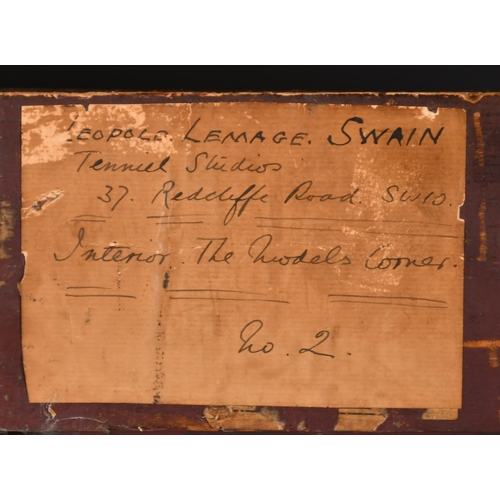 LEOPOLE. LEMAGE. SWAIN
Tenniel Studios
37. Redcliffe Road. SW10.
Interior. The Models Corner.
No. 2.